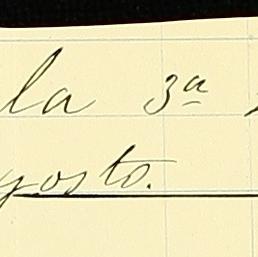 la 3ª
gosto.